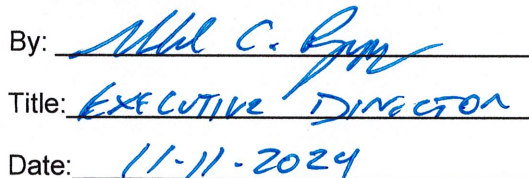 By: C.
Title: EXECUTIVE DIRECTOR
Date: 11-11-2024